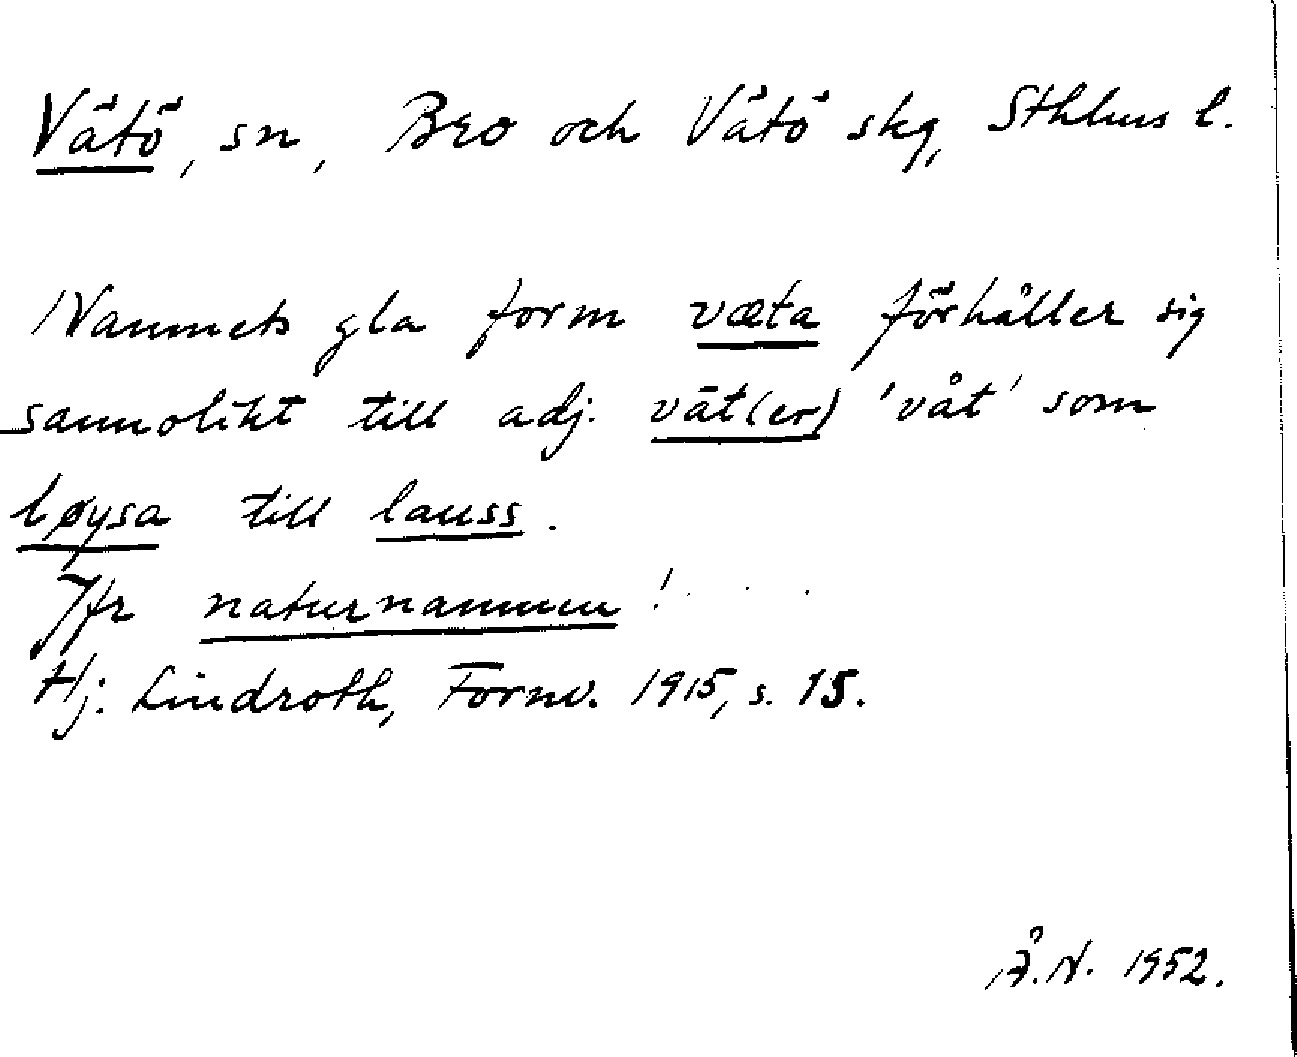 Vätö, sn, Bro och Vätö skg, Sthlms l.
Namnets gla form væta förhåller sig
sannolikt till adj. vāt(er) 'våt' som
løysa till lauss.
Jfr naturnamnen!
Hj. Lindroth, Fornv. 1915, s. 15.
Å.N. 1952.